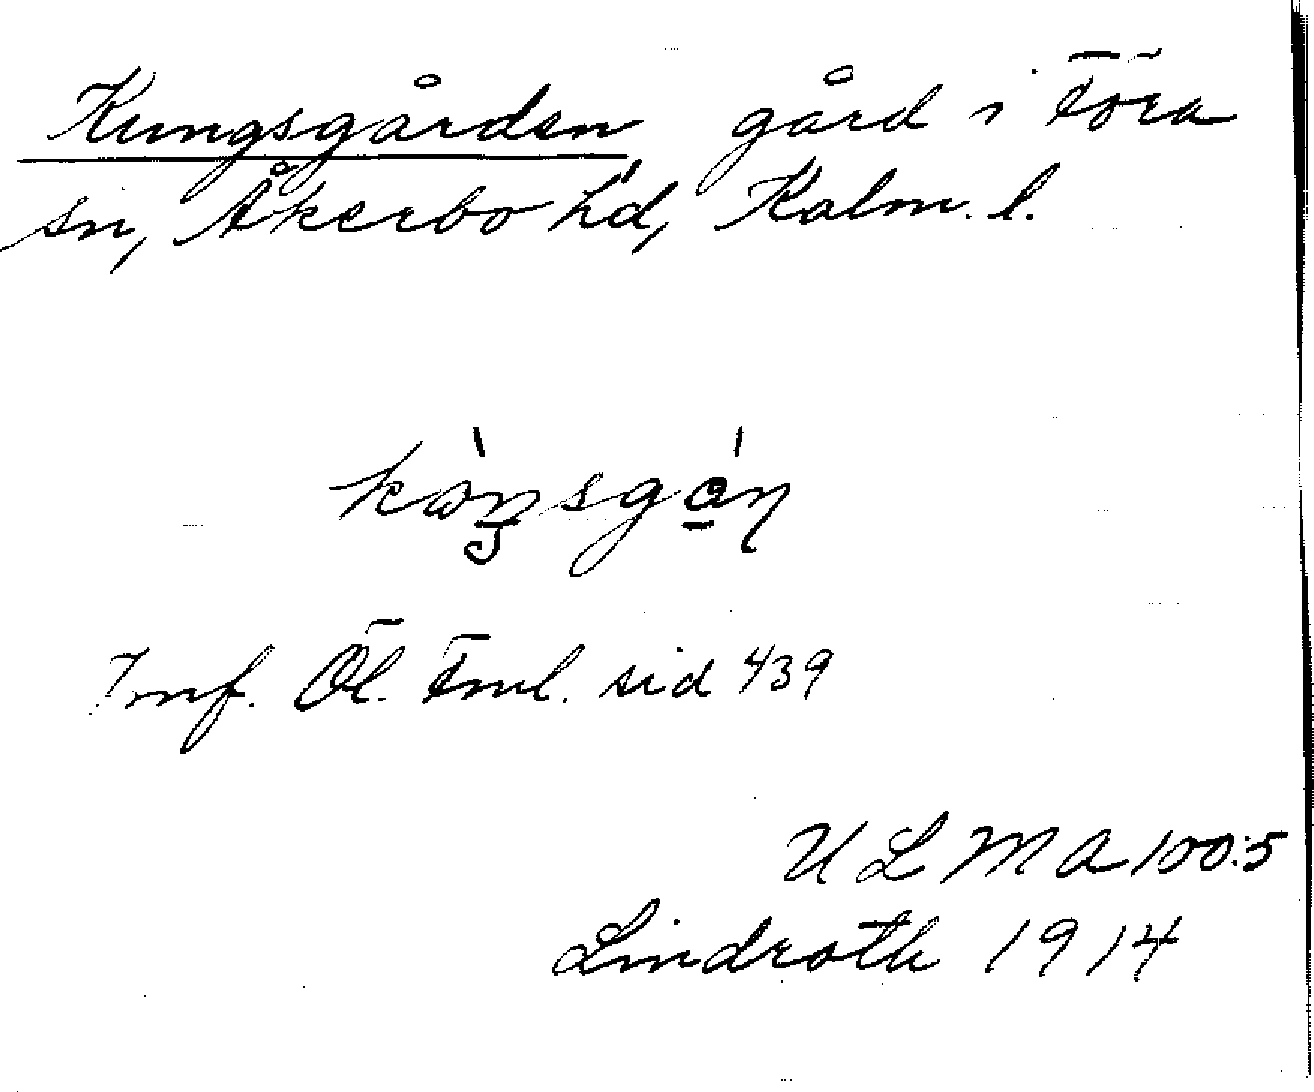 Kungsgården gård i Föra
sn, Åkerbo hd, Kalm. l.
Jmf. Öl. Fml. sid 439
U L M A 100:5
Lindroth 1914